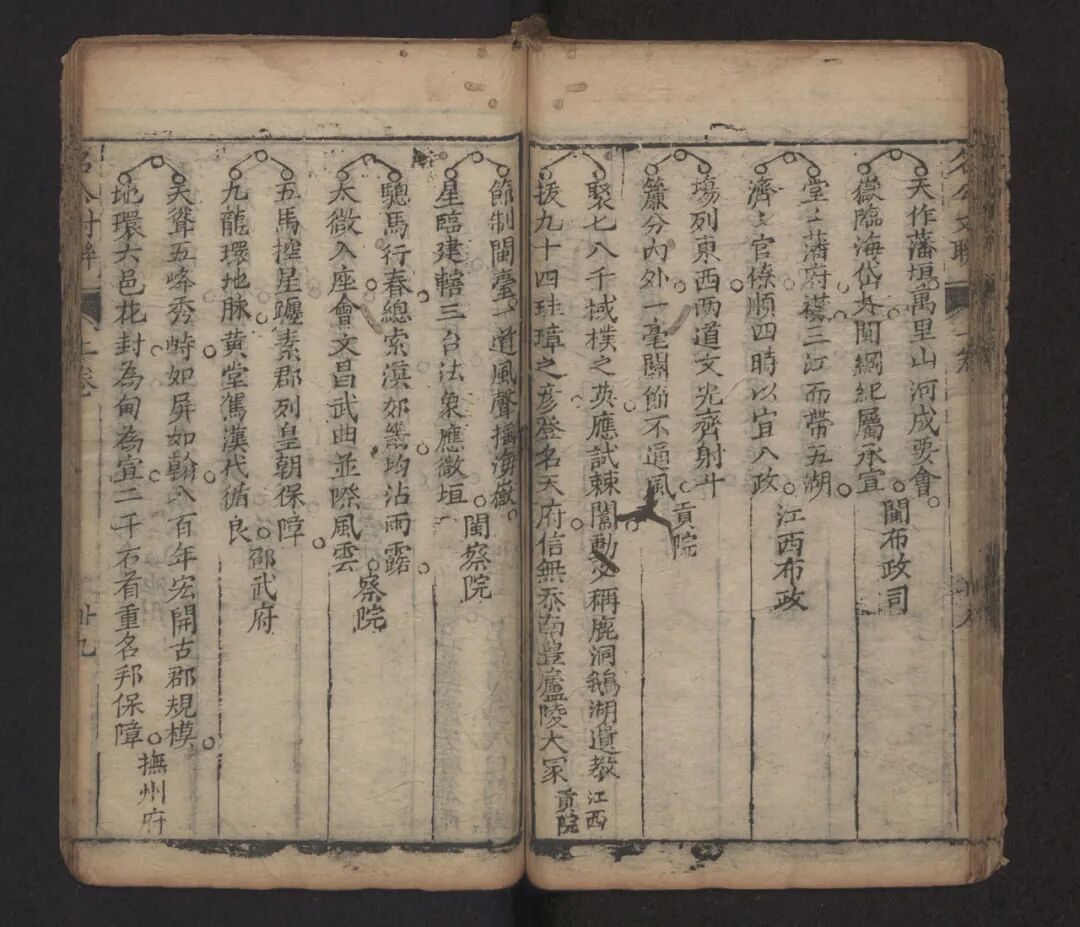 天作藩垣萬里山河成要會
嶽臨海岱七閩綱紀屬承宣
閩布政司
堂〻藩府襟三江而帶五湖
濟〻官僚順四時以宜八政
江西布政
場列東西兩道文光齊射斗
簾分內外一毫關節不通風
貢院
聚七八千棫樸之英應試棘闈動必稱鹿洞鵝湖遺教
拔九十四珪璋之彥登名天府信無忝南豐廬陵大家
江西
貢院
節制閩臺一道風聲播海嶽
星臨建轄三台法象應微垣
閩察院
驄馬行春總索滇郊畿均沾雨露
太微入座會文昌武曲並際風雲
察院
五馬控星躔素郡列皇朝保障
九龍環地脉黃堂駕漢代循良
邵武府
天聳五峰秀峙如屏如翰八百年宏開古郡規模
地環六邑花封為甸為宣二千石首重名邦保障
撫州府
上卷
廿九